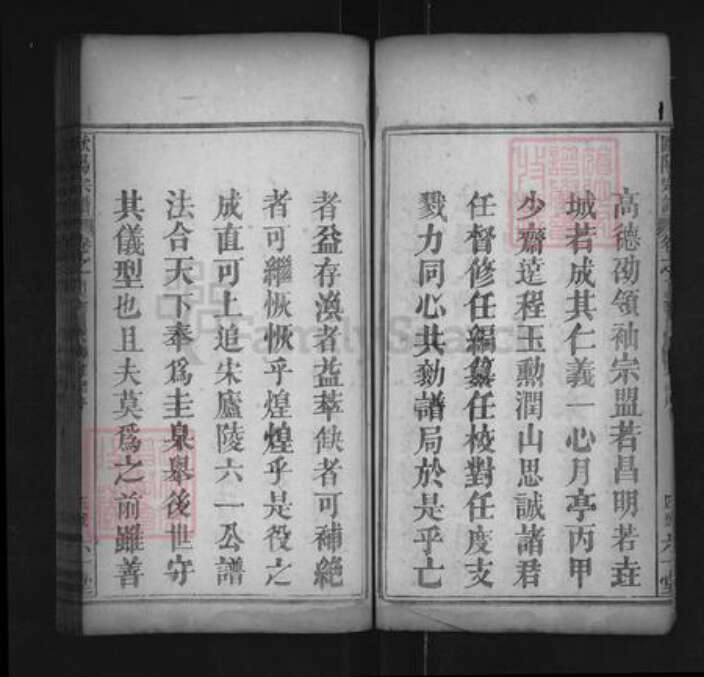 高德劭領袖宗盟若昌明若垚
城若成其仁義一心月亭丙甲
少齋達程玉勲潤山思誠諸君
任督修任編纂任校對任度支
戮力同心共勷譜局於是乎亡
者益存渙者益萃缺者可補絕
者可繼恢恢乎煌煌乎是役之
成直可上追宋廬陵六一公譜
法合天下奉爲圭臬舉後世守
其儀型也且夫莫爲之前雖善
FamilySearch